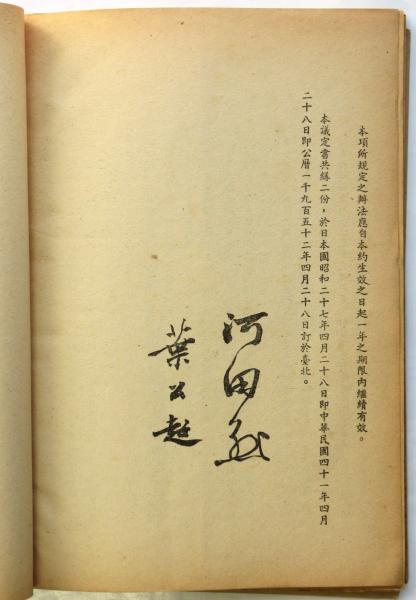 本項所規定之辦法應自本約生效之日起一年之期限內繼續有效。
本議定書共繕二份，於日本國昭和二十七年四月二十八日即中華民國四十一年四月
二十八日即公曆一千九百五十二年四月二十八日訂於臺北。
河田烈
葉公超